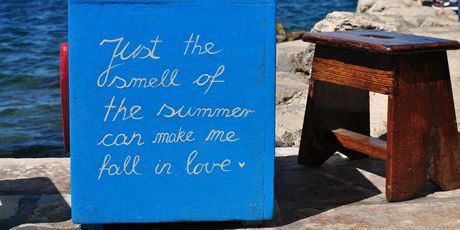 Just the
smell of
the summer
can make me
fall in love ♥